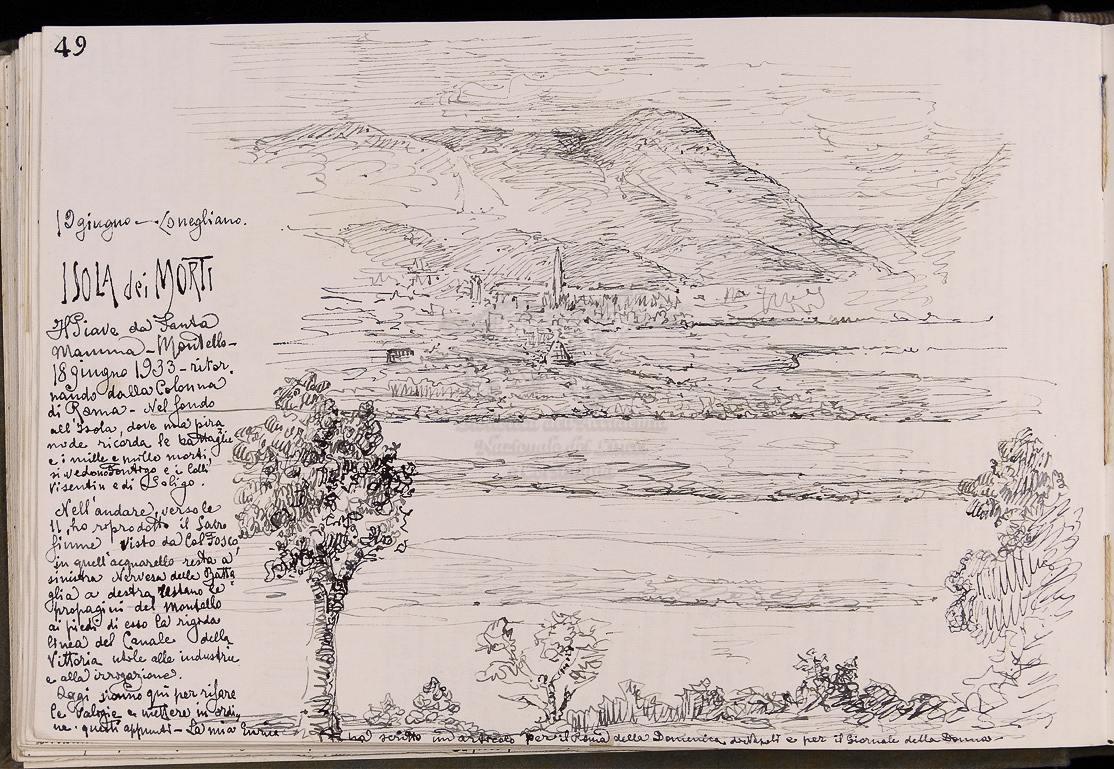 49
19 giugno - Conegliano.
ISOLA dei MORTI
Il Piave da Santa
Mamma - Montello -
18 giugno 1933 - ritor-
nando dalla Colonna
di Roma - Nel fondo
all'Isola, dove una pira
mide ricorda le battaglie
e i mille e mille morti,
si vedono e i Colli
Visentin e di Soligo.
Nell'andare, verso le
11, ho riprodotto il Sacro
fiume visto da Col Fosco,
in quell'acquarello resta a
sinistra Nervesa della Batta
glia a destra restano le
propagini del Montello
ai piedi di esso la rigida
linea del Canale della
Vittoria utole alle industrie
e alla irrogazione.
Oggi siamo qui per rifare
le valigie e mettere in ordi-
ne questi appunti - La mia
ha scritto un articolo per il della Domenica di Napoli e per il Giornale della Donna -